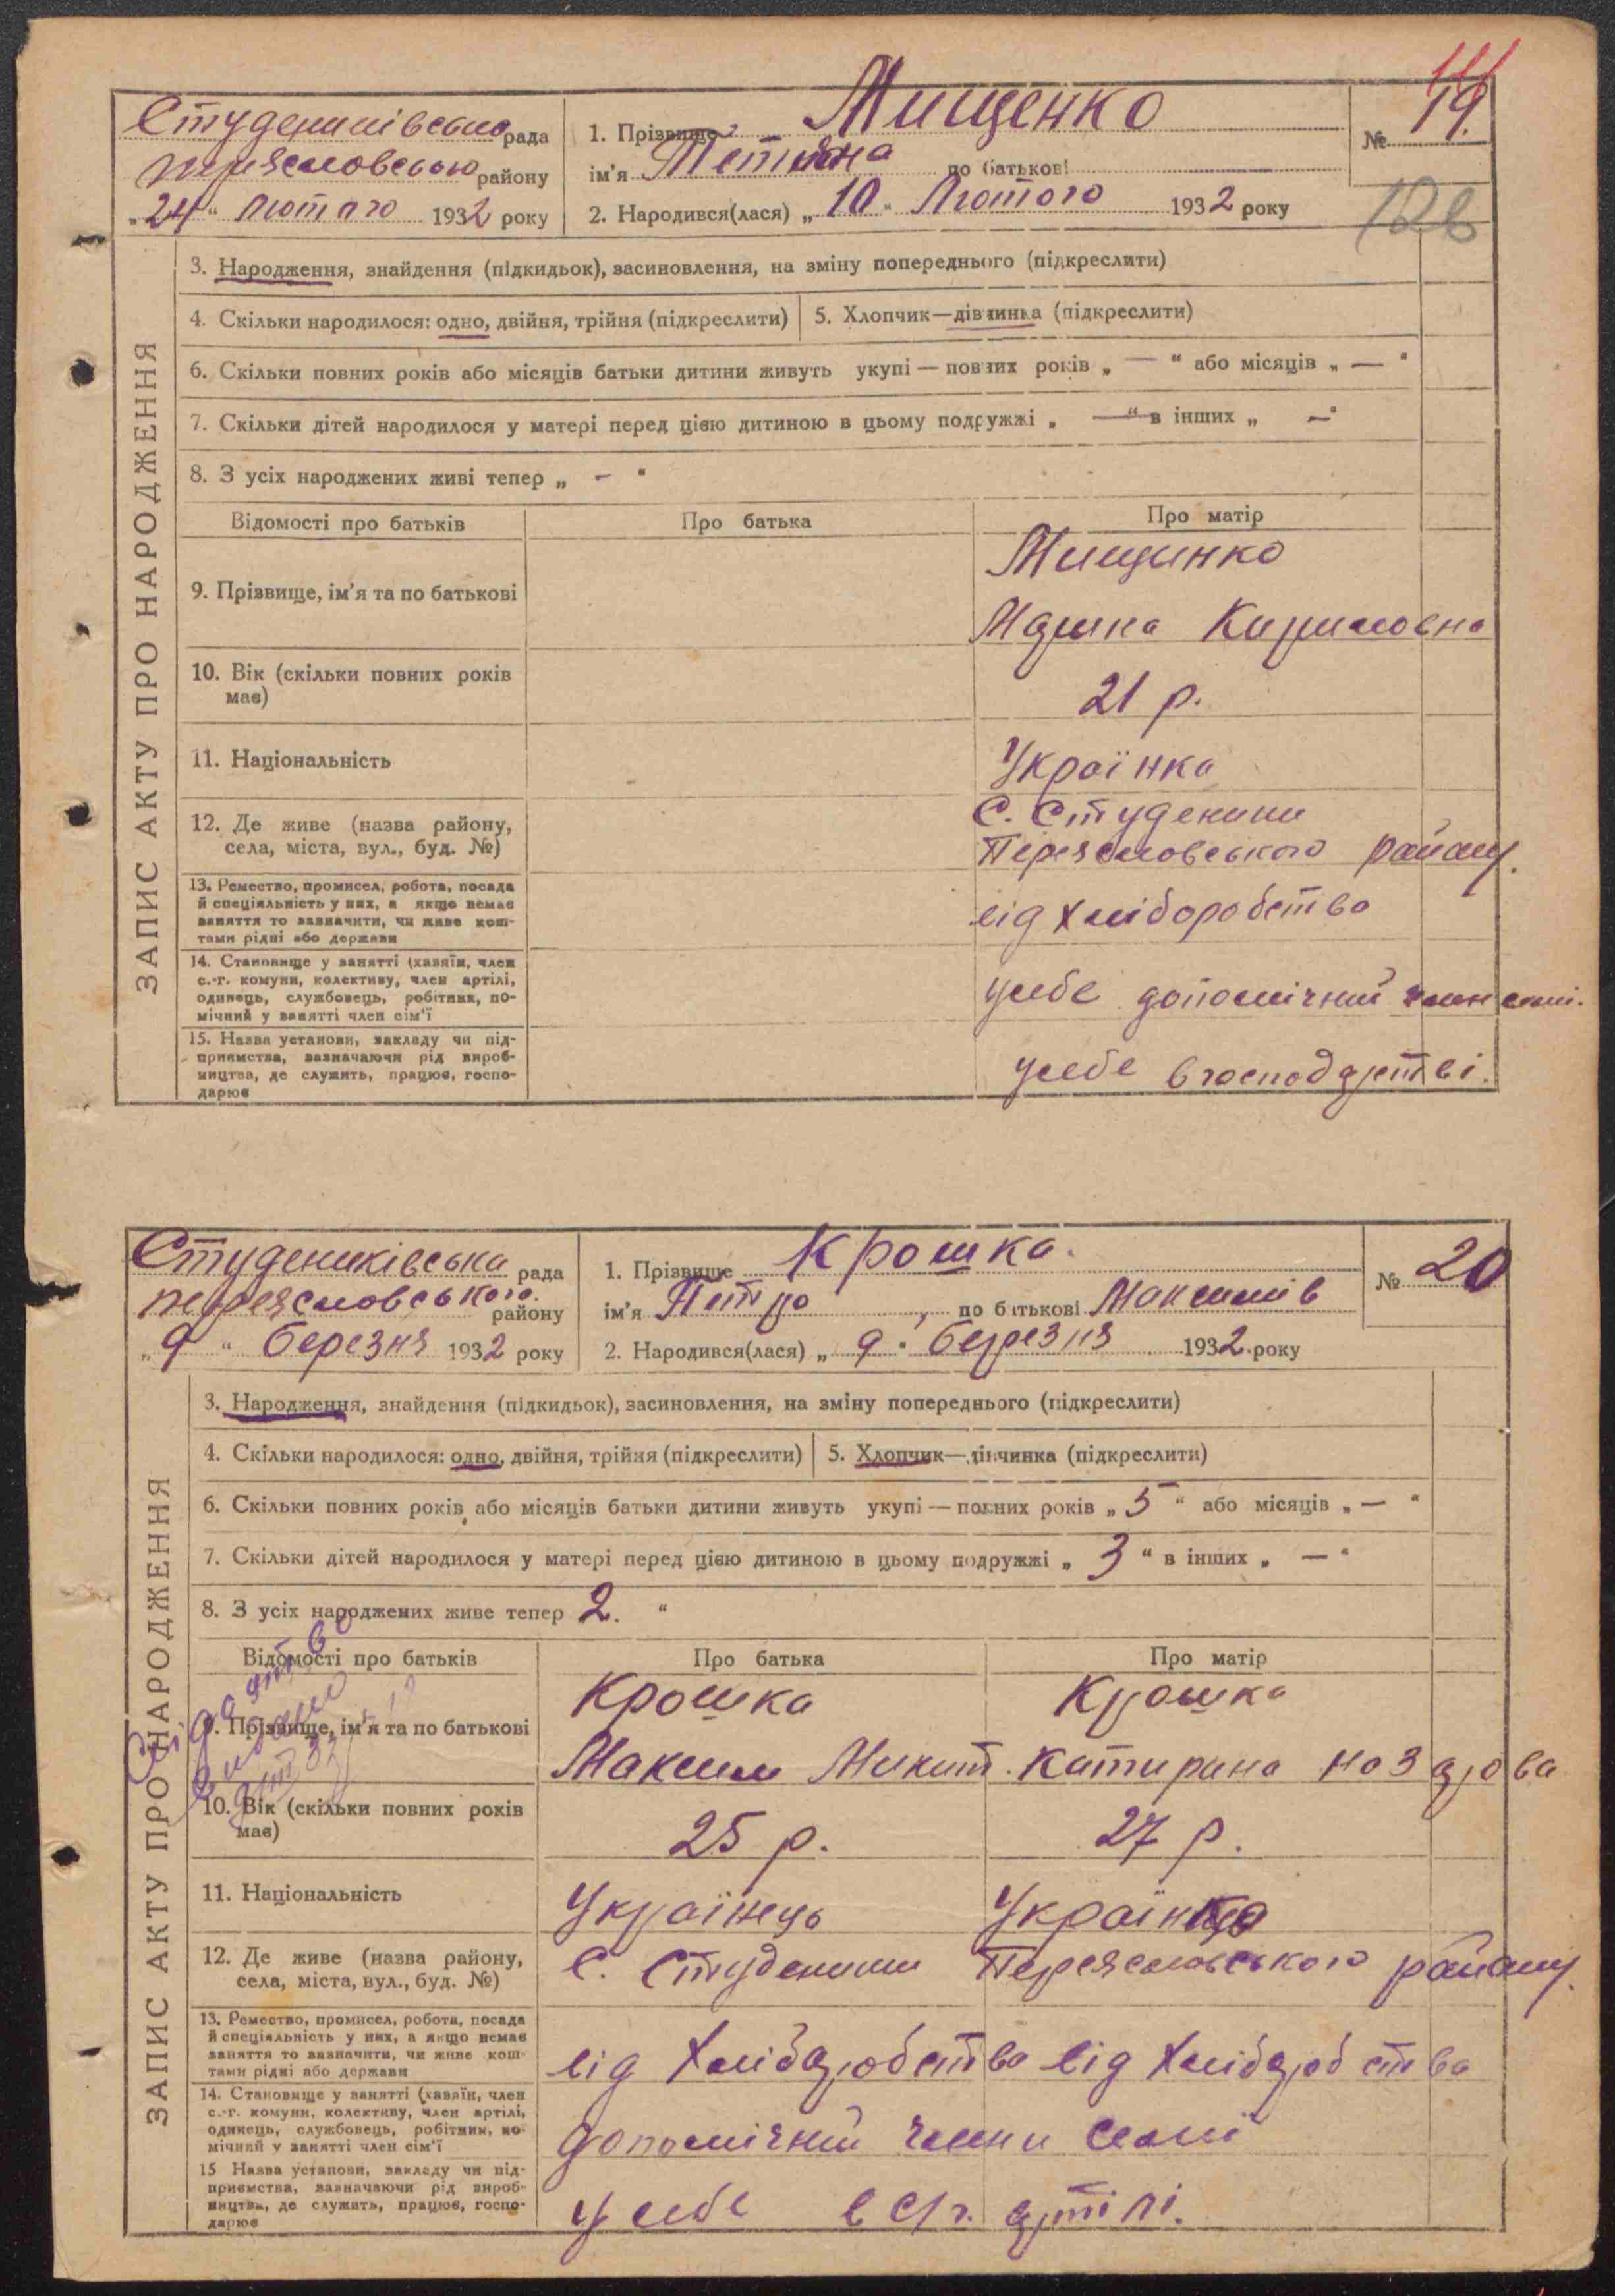 Мищенко
Студениківсько рада
1. Прізвище
№ 19.
Переяславського району
ім'я Тетяна по батькові
„24“ Лютого 1932 року
2. Народився(лася) „10“ Лютого 1932 року
ЗАПИС АКТУ ПРО НАРОДЖЕННЯ
3. Народження, знайдення (підкидьок), засиновлення, на зміну попереднього (підкреслити)
4. Скільки народилося: одно, двійня, трійня (підкреслити)
5. Хлопчик—дівчинка (підкреслити)
6. Скільки повних років або місяців батьки дитини живуть укупі — повних років „ — “ або місяців „ — “
7. Скільки дітей народилося у матері перед цією дитиною в цьому подружжі „ — “ в інших „ — “
8. З усіх народжених живі тепер „ — “
Відомості про батьків
Про батька
Про матір
9. Прізвище, ім'я та по батькові
Мищинко
Марина Кириловна
10. Вік (скільки повних років
має)
21 р.
11. Національність
Українка
12. Де живе (назва району,
села, міста, вул., буд. №)
С. Студеники
Переяславського району.
13. Ремество, промисел, робота, посада
й спеціяльність у них, а якщо немає
заняття то зазначити, чи живе кош-
тами рідні або держави
від хліборобства
14. Становище у занятті (хазяїн, член
с.-г. комуни, колективу, член артілі,
одинець, службовець, робітник, по-
мічний у занятті член сім'ї
у себе допомічний член семі.
15. Назва установи, закладу чи під-
приємства, зазначаючи рід вироб-
ництва, де служить, працює, госпо-
дарює
у себе в господарстві.
Студениківська рада
1. Прізвище Крошка.
№ 20
Переяславського району
ім'я Петро, по батькові Максимів
„9“ березня 1932 року
2. Народився(лася) „9“ березня 1932 року
ЗАПИС АКТУ ПРО НАРОДЖЕННЯ
3. Народження, знайдення (підкидьок), засиновлення, на зміну попереднього (підкреслити)
4. Скільки народилося: одно, двійня, трійня (підкреслити)
5. Хлопчик—дівчинка (підкреслити)
6. Скільки повних років або місяців батьки дитини живуть укупі — повних років „5“ або місяців „ — “
7. Скільки дітей народилося у матері перед цією дитиною в цьому подружжі „3“ в інших „ — “
8. З усіх народжених живе тепер 2. “
Відомості про батьків
Про батька
Про матір
9. Прізвище, ім'я та по батькові
Крошка
Крошка
Максим Микит.
Катирина Назарова
10. Вік (скільки повних років
має)
25 р.
27 р.
11. Національність
Українець
12. Де живе (назва району,
села, міста, вул., буд. №)
С. Студеники Переяславського району.
13. Ремество, промисел, робота, посада
й спеціяльність у них, а якщо немає
заняття то зазначити, чи живе кош-
тами рідні або держави
від Хліборобства від Хліборобства
14. Становище у занятті (хазяїн, член
с.-г. комуни, колективу, член артілі,
одинець, службовець, робітник, по-
мічний у занятті член сім'ї
допомічний члени семі
15 Назва установи, закладу чи під-
приємства, зазначаючи рід вироб-
ництва, де служить, працює, госпо-
дарює
у себе в с/г. артілі.